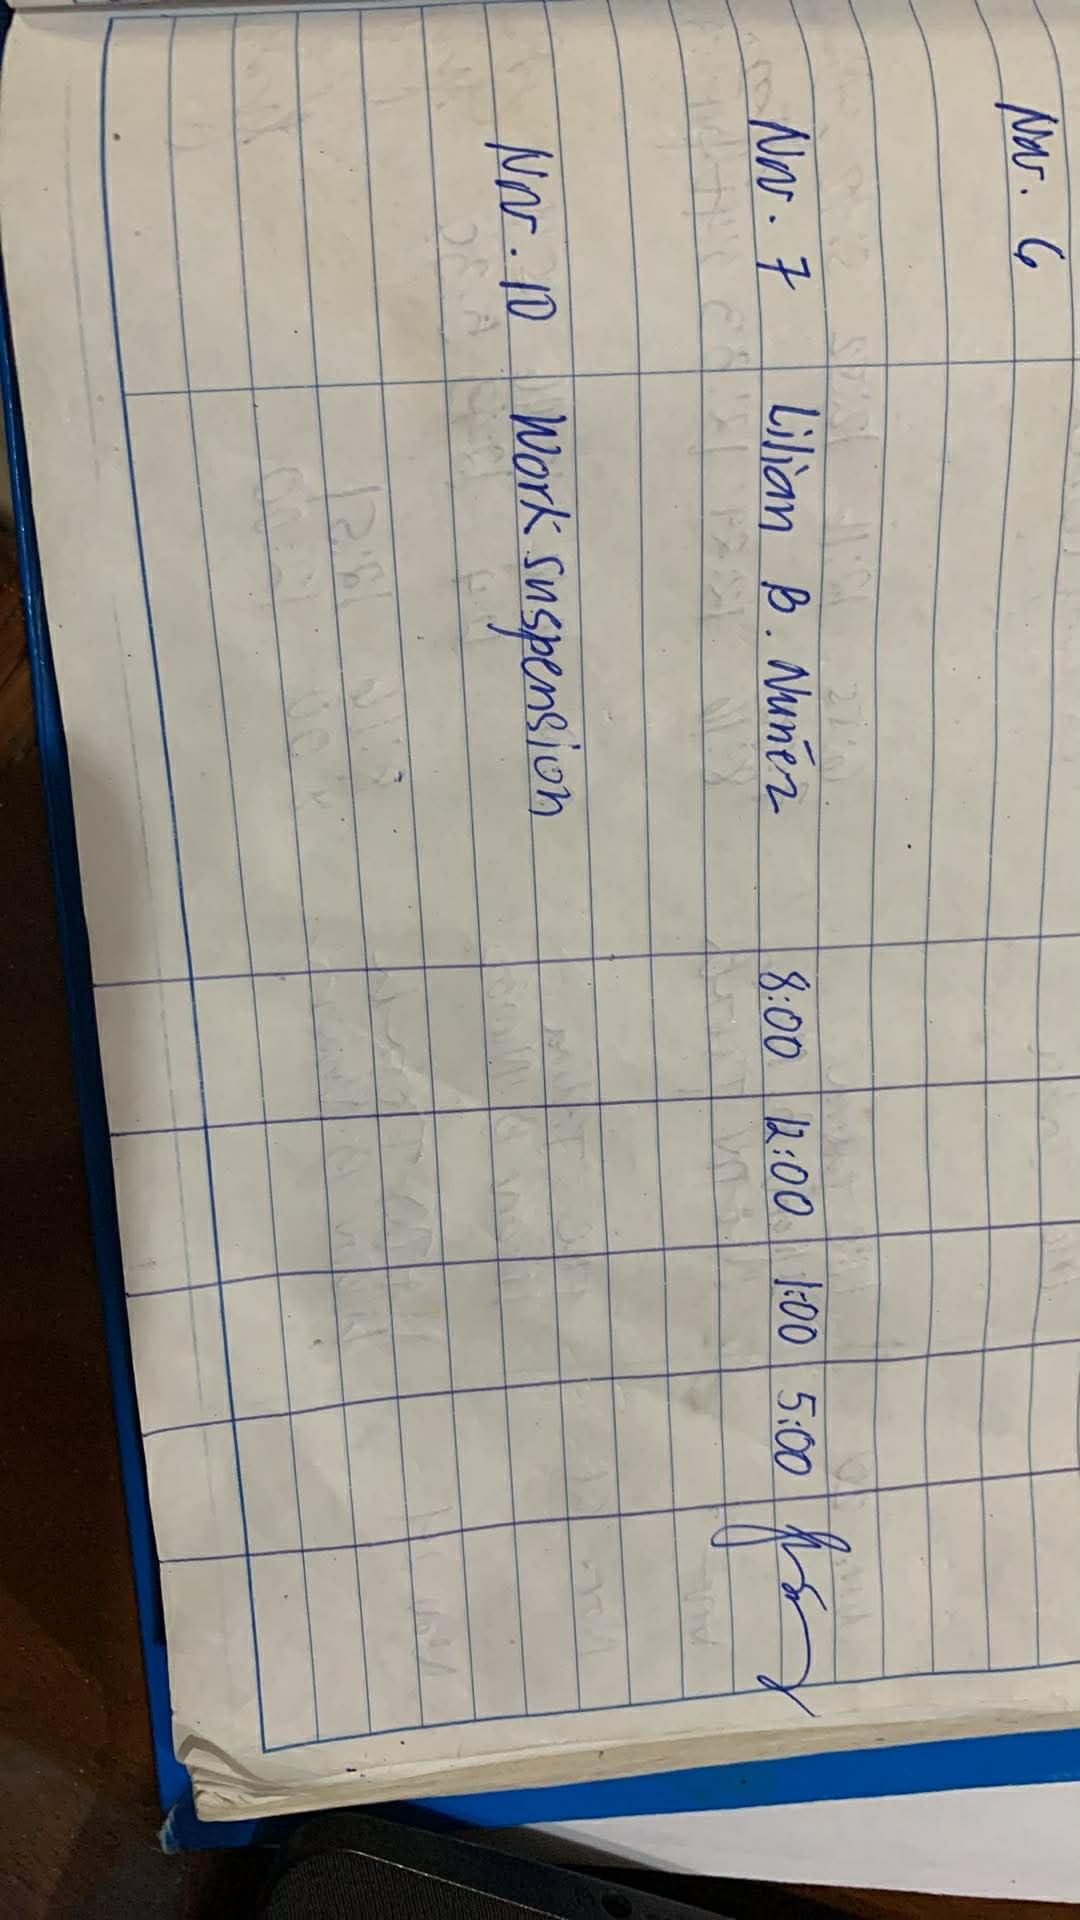 Nov. 6
Nov. 7 Lilian B. Nuñez 8:00 12:00 1:00 5:00
Nov. 10 Work suspension